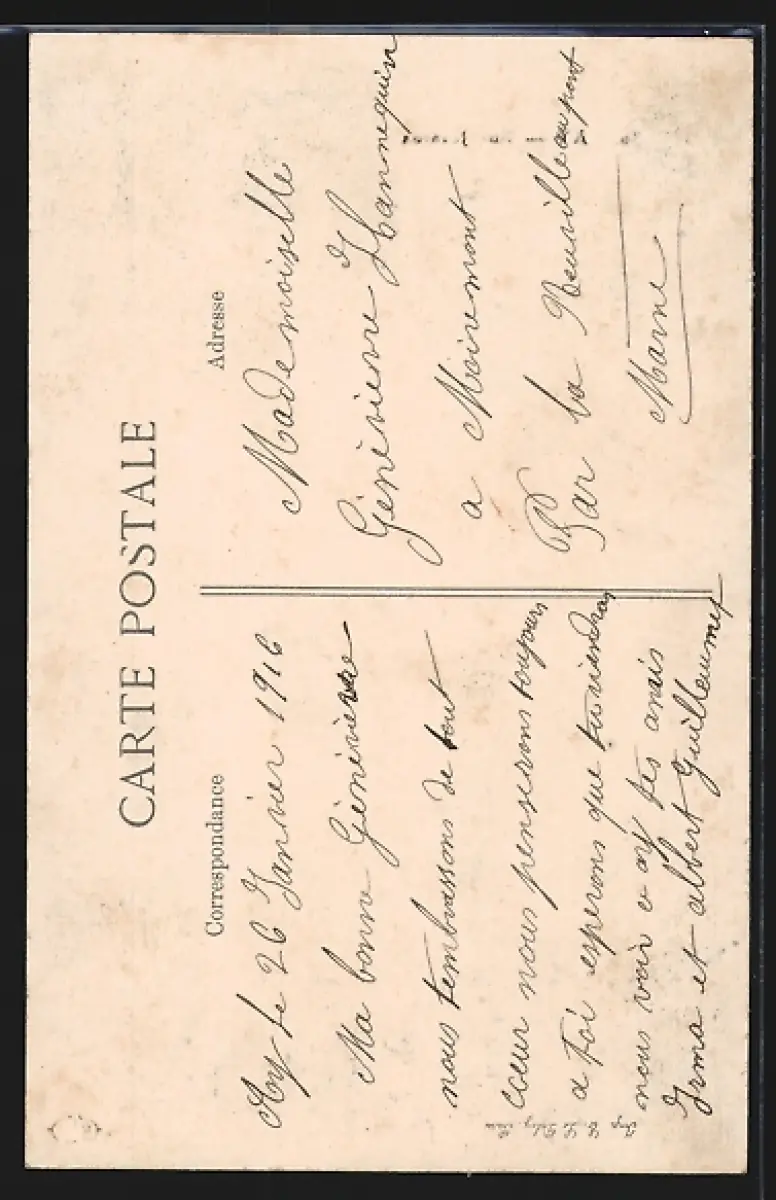 CARTE POSTALE
Correspondance
Ay le 26 Janvier 1916
Ma bonne Génévieve
nous tembrassons de tout
coeur nous penserons toujours
a toi esperons que tu viendras
nous voir a ay tes amis
Irma et albert Guillaumet
Adresse
Mademoiselle
Génévienne Hannequin
a Moiremont
Par la Neuville au pont
Marne